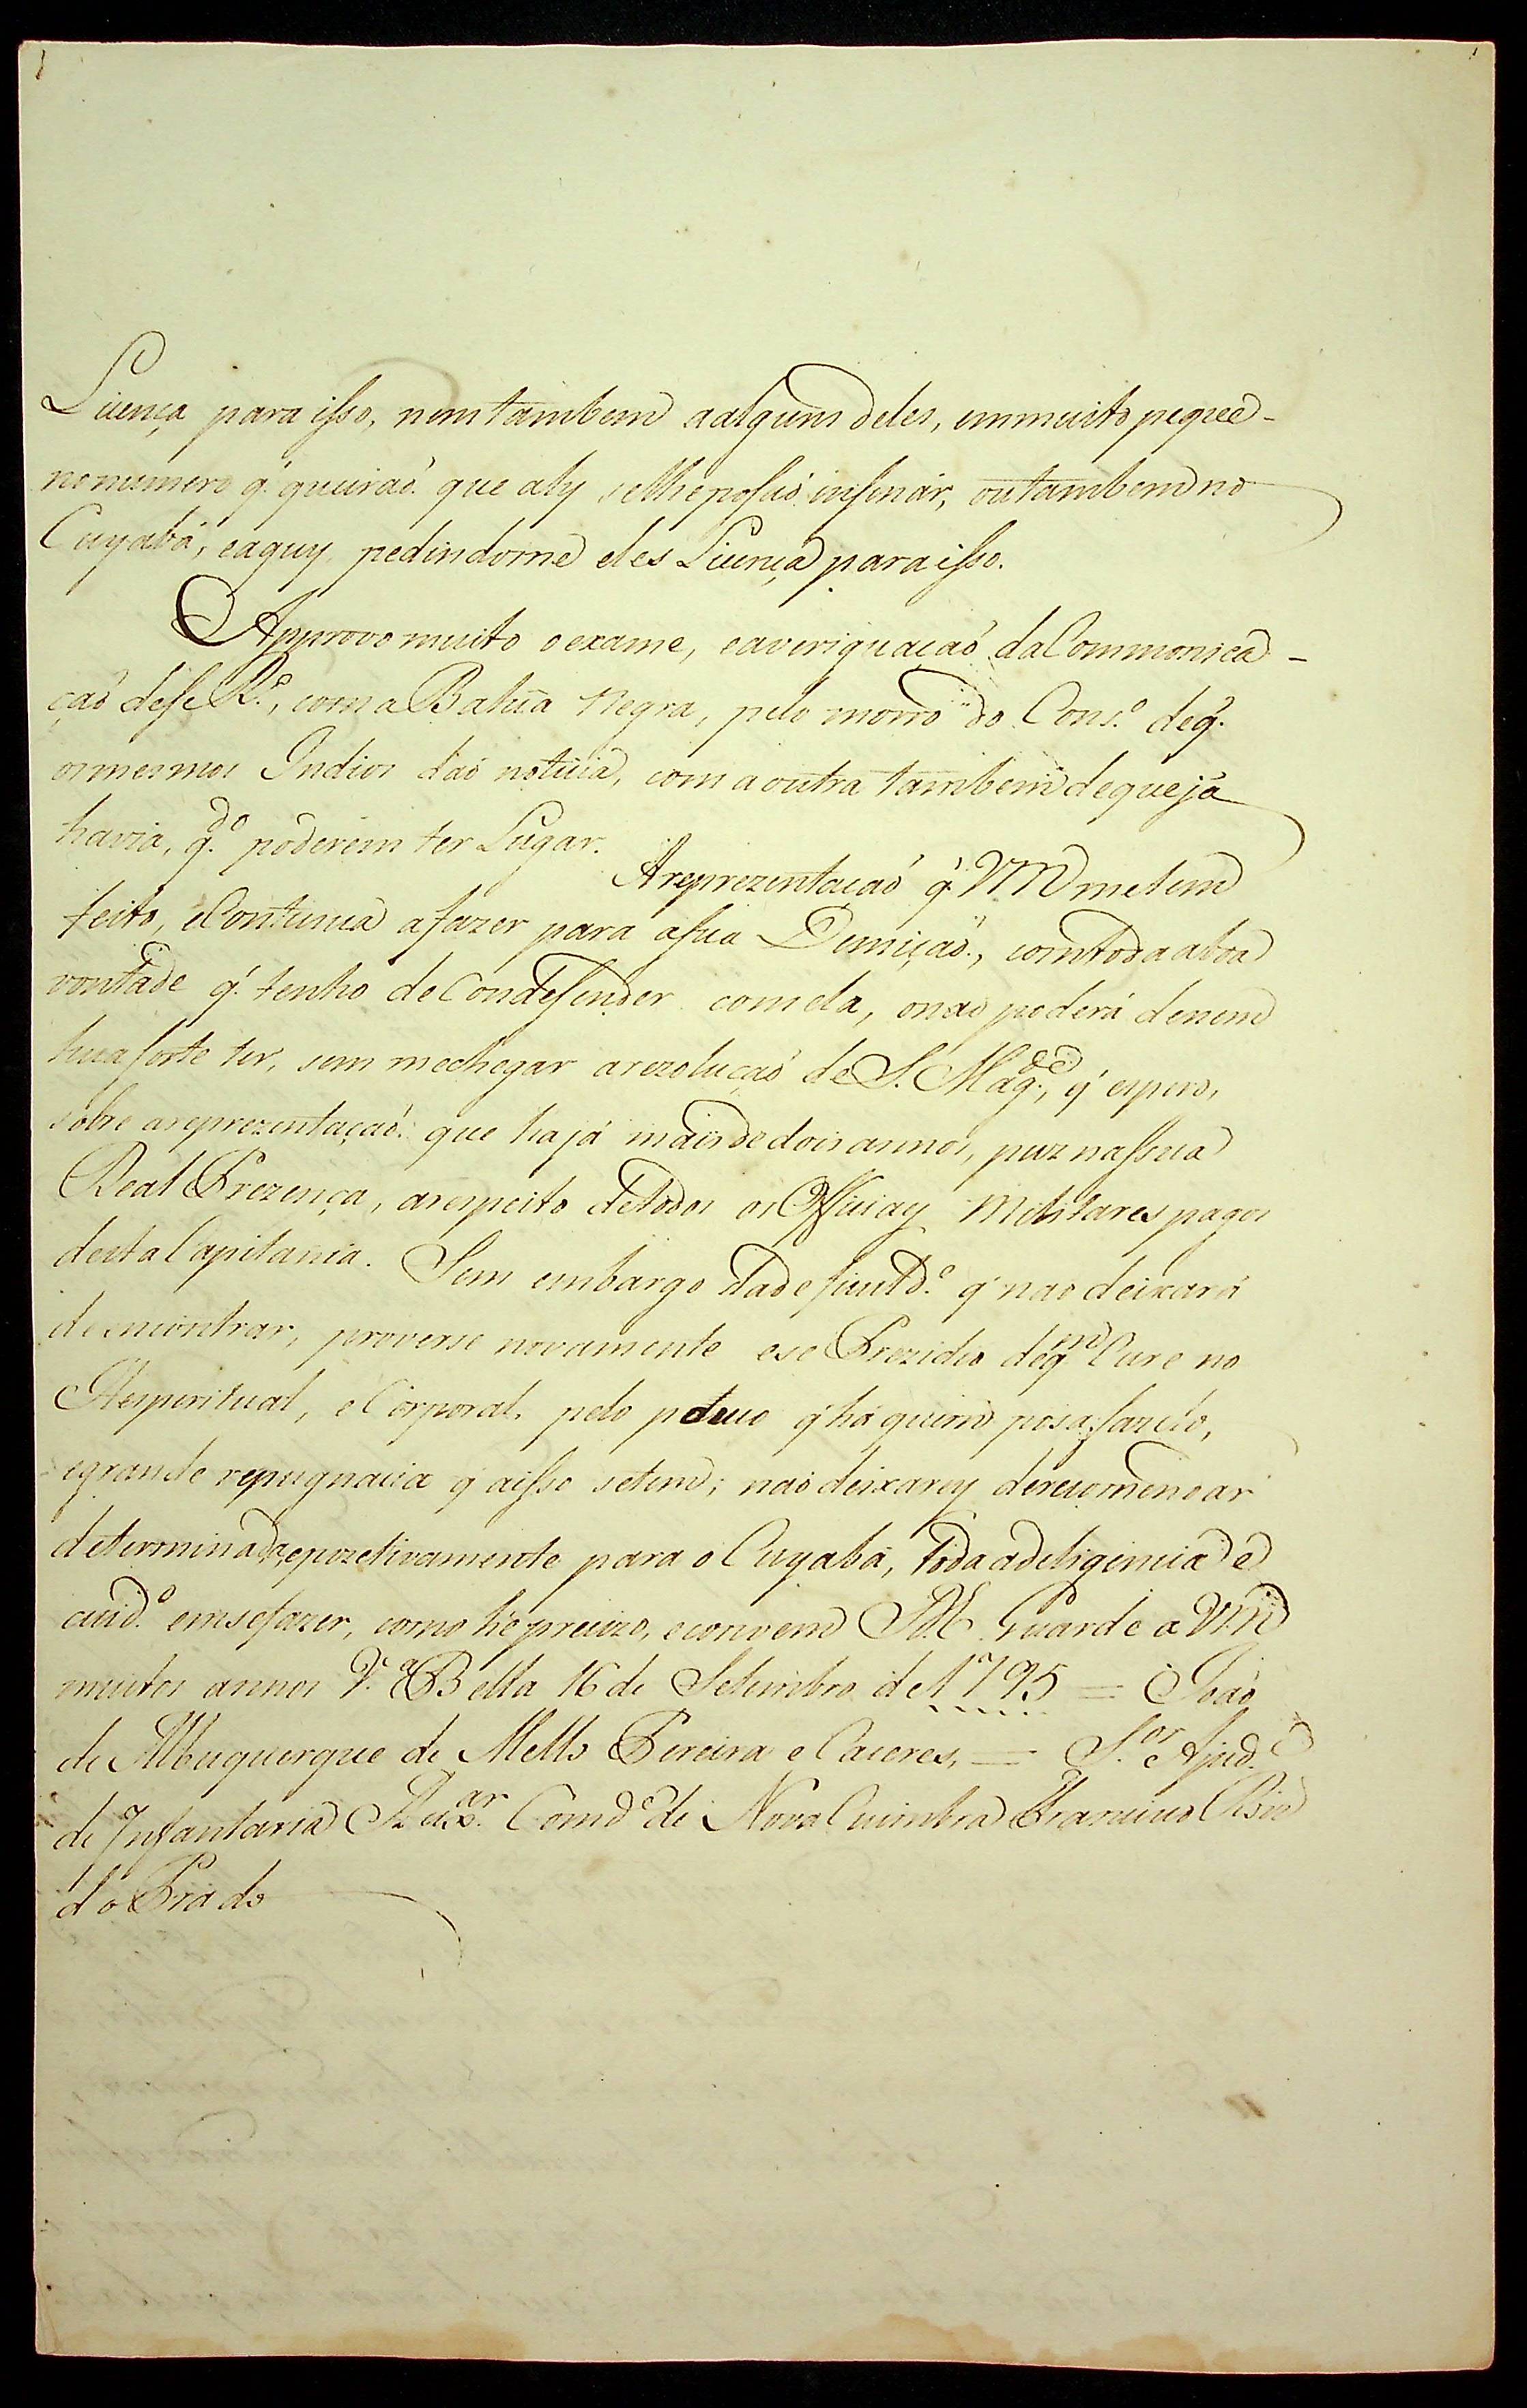 Licença para isso, nem tambem a alguns deles, em muito peque-
no numero q̃. queiraõ. que aly selhe posaõ insinar, ou tambem no
Cuyabá, eaquy pedindome eles Licença para isso.
Approvo muito o exame, e averiguaçaõ da Commonica-
çaõ dese R.º, com a Bahia Negra, pelo morro do Cons.º de q̃.
os mesmos Indios daõ noticia, com a outra tambem de que já
havia, q.do poderem ter Lugar.
A reprezentaçaõ q̃ VM me tem
feito, e Continua a fazer para a sua Demiçaõ., com toda a boa
vontade q̃. tenho de Condesender com ela, o naõ poderá de nem
hua sorte ter, sem me chegar a rezoluçaõ de S. Mag.de, q̃ espero,
sobre a reprezentaçaõ. que ha já mais de dois annos, puz na sua
Real Prezença, a respeito de todos os Officiaes Militares pagos
desta Capitania. Sem embargo da deficuld.e q̃ naõ deixará
de encontrar, proverse novamente ese Prezidio de q.em Cure no
Espiritual, e Corporal, pelo pouco q̃ há quem posa fazelo,
e grande repugnacia q̃ a isso se tem; naõ deixarey de recomendar
determinada, e pozetivamente para o Cuyabá, toda a deligencia e
cuid.º em se fazer, como hé precizo, e convem D.s Guarde a VM
muitos annos V.ª Bella 16 de Setembro de 1795 = Joaõ
de Albuquerque de Mello Pereira e Caceres, = S.or Ajud.e
de Infantaria Aux.ar Comd.e de Nova Cuimbra Francisco Roiz
do Prado